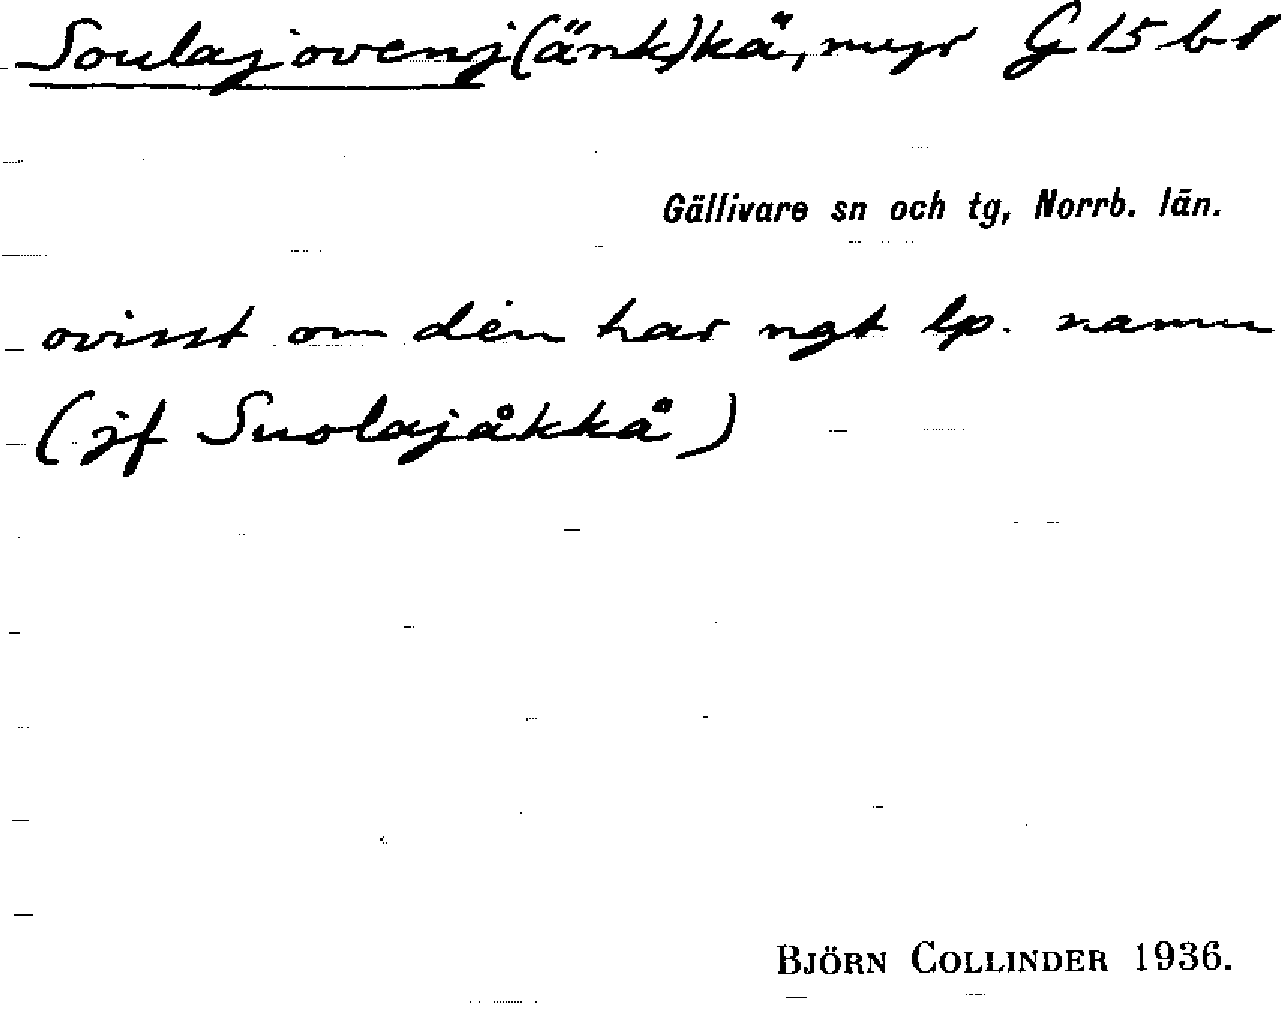 Soulajovenj(änk)kå, myr G 15 b 1
Gällivare sn och tg, Norrb. län.
ovisst om den har ngt lp. namn
(jf Suolajåkkå)
BJÖRN COLLINDER 1936.